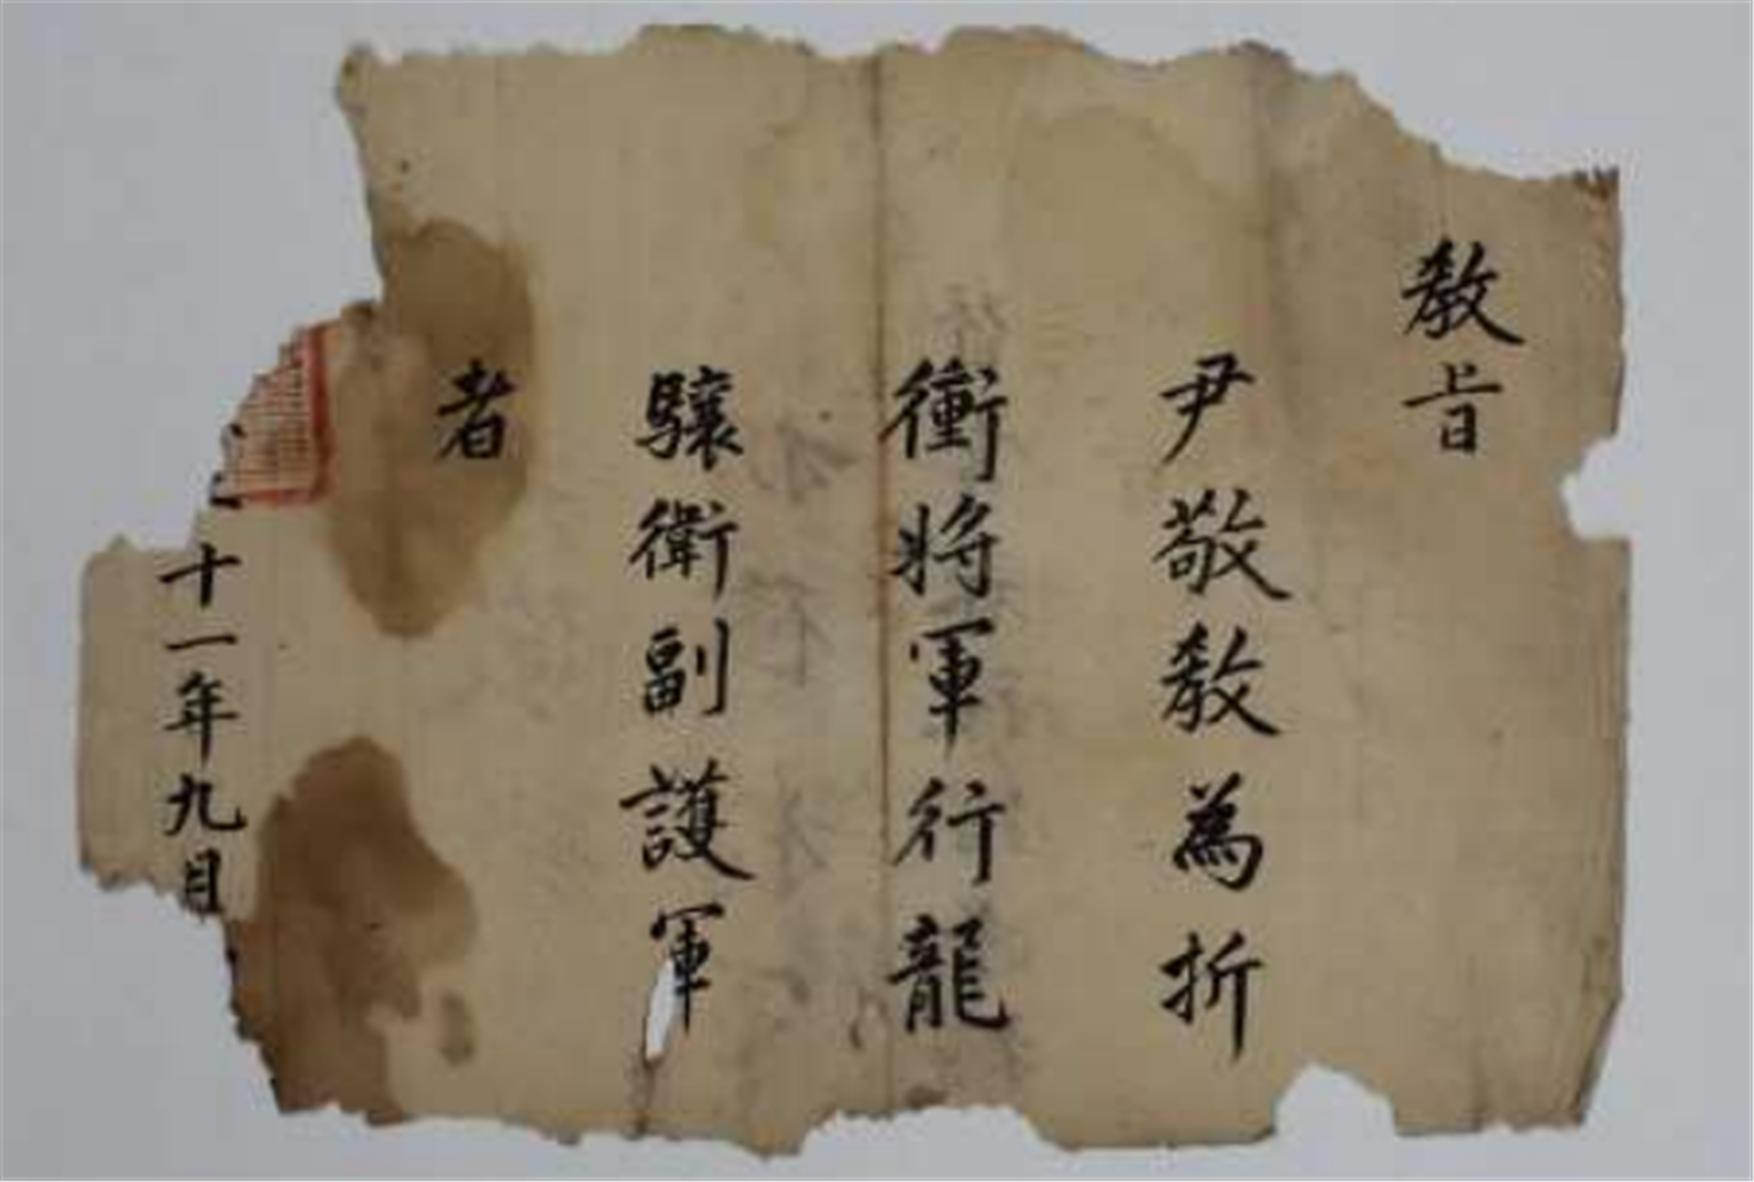 敎旨
尹敬敎為折
衝將軍行龍
驤衛副護軍
者
十一年九月